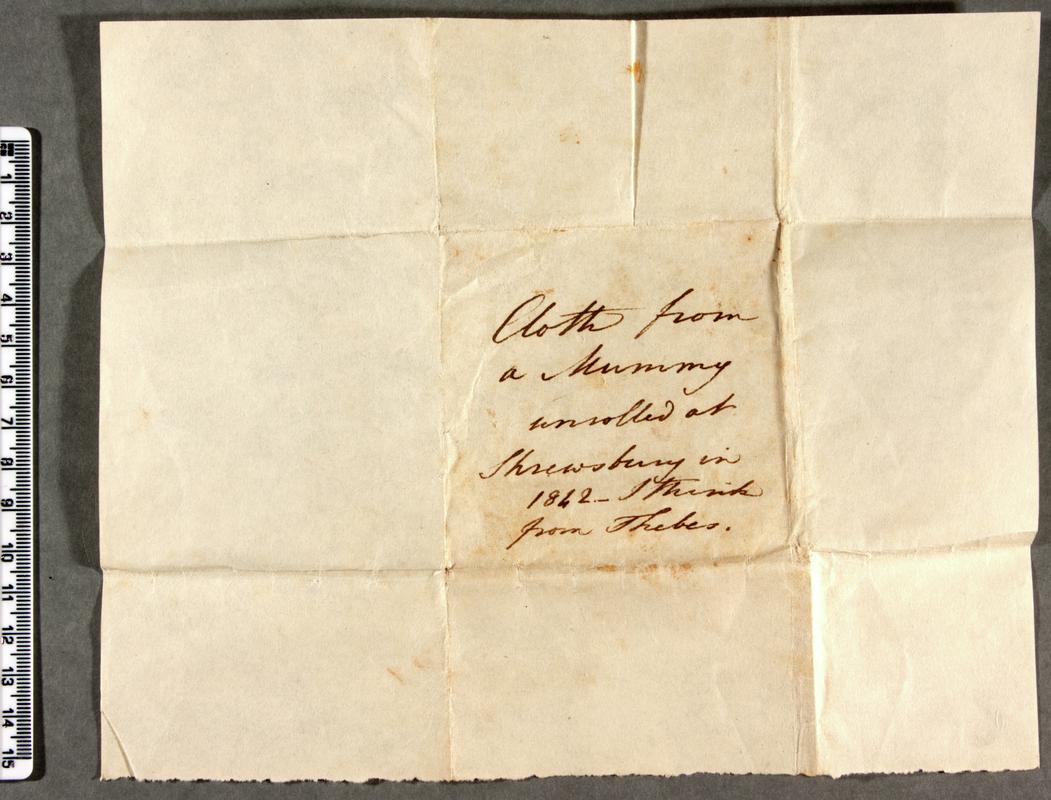 Cloth from
a Mummy
unrolled at
Shrewsbury in
1842 - I think
from Thebes.
1
2
3
4
5
6
7
8
9
10
11
12
13
14
15